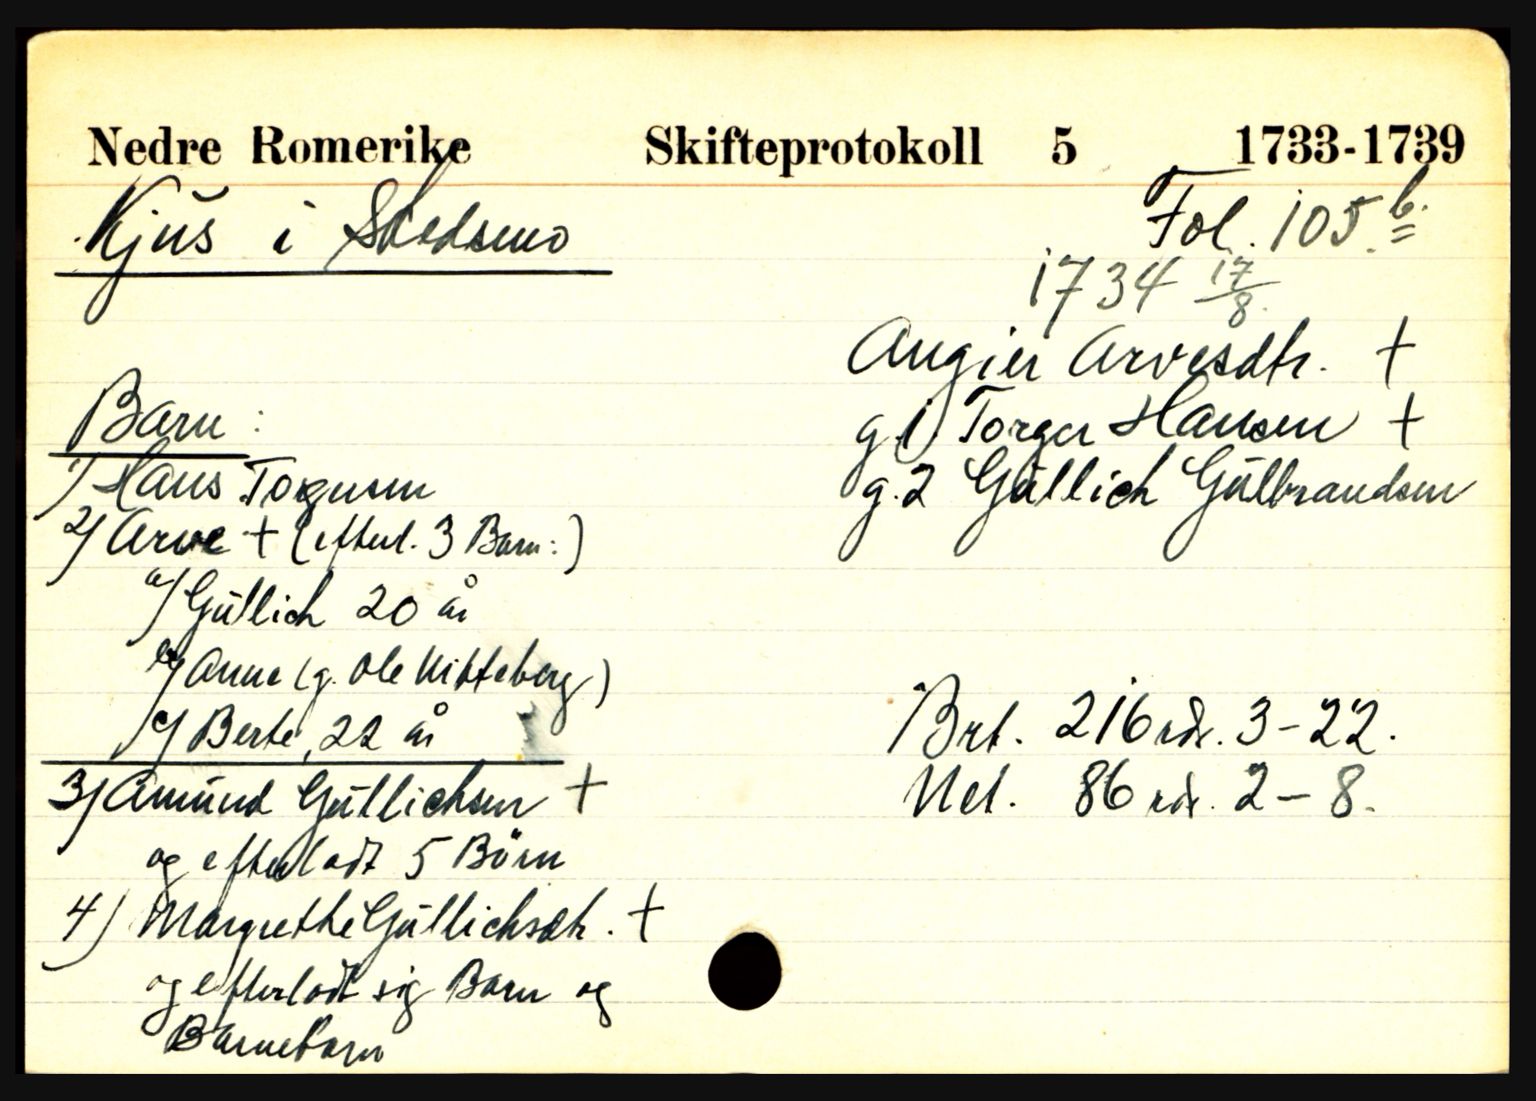 Nedre Romerike Skifteprotokoll 5 1733-1739
Kjus i Skedsmo
Fol. 105 b.
1734 17/8.
Angier Arvesdtr. †
g 1) Torger Hansen †
g. 2 Gullich Gulbrandsen
Barn:
1) Hans Torgersen
2) Arve † (efterl. 3 Barn:)
a/ Gullich 20 år
b/ Anne (g. Ole Nitteberg)
c/ Berte, 22 år
3) Amund Gullichsen †
og efterladt 5 Börn
4) Margrethe Gullichsdtr. †
og efterladt sig Barn og
Barnebarn
Brt. 216 rdr. 3 - 22.
Net. 86 rdr. 2 - 8.